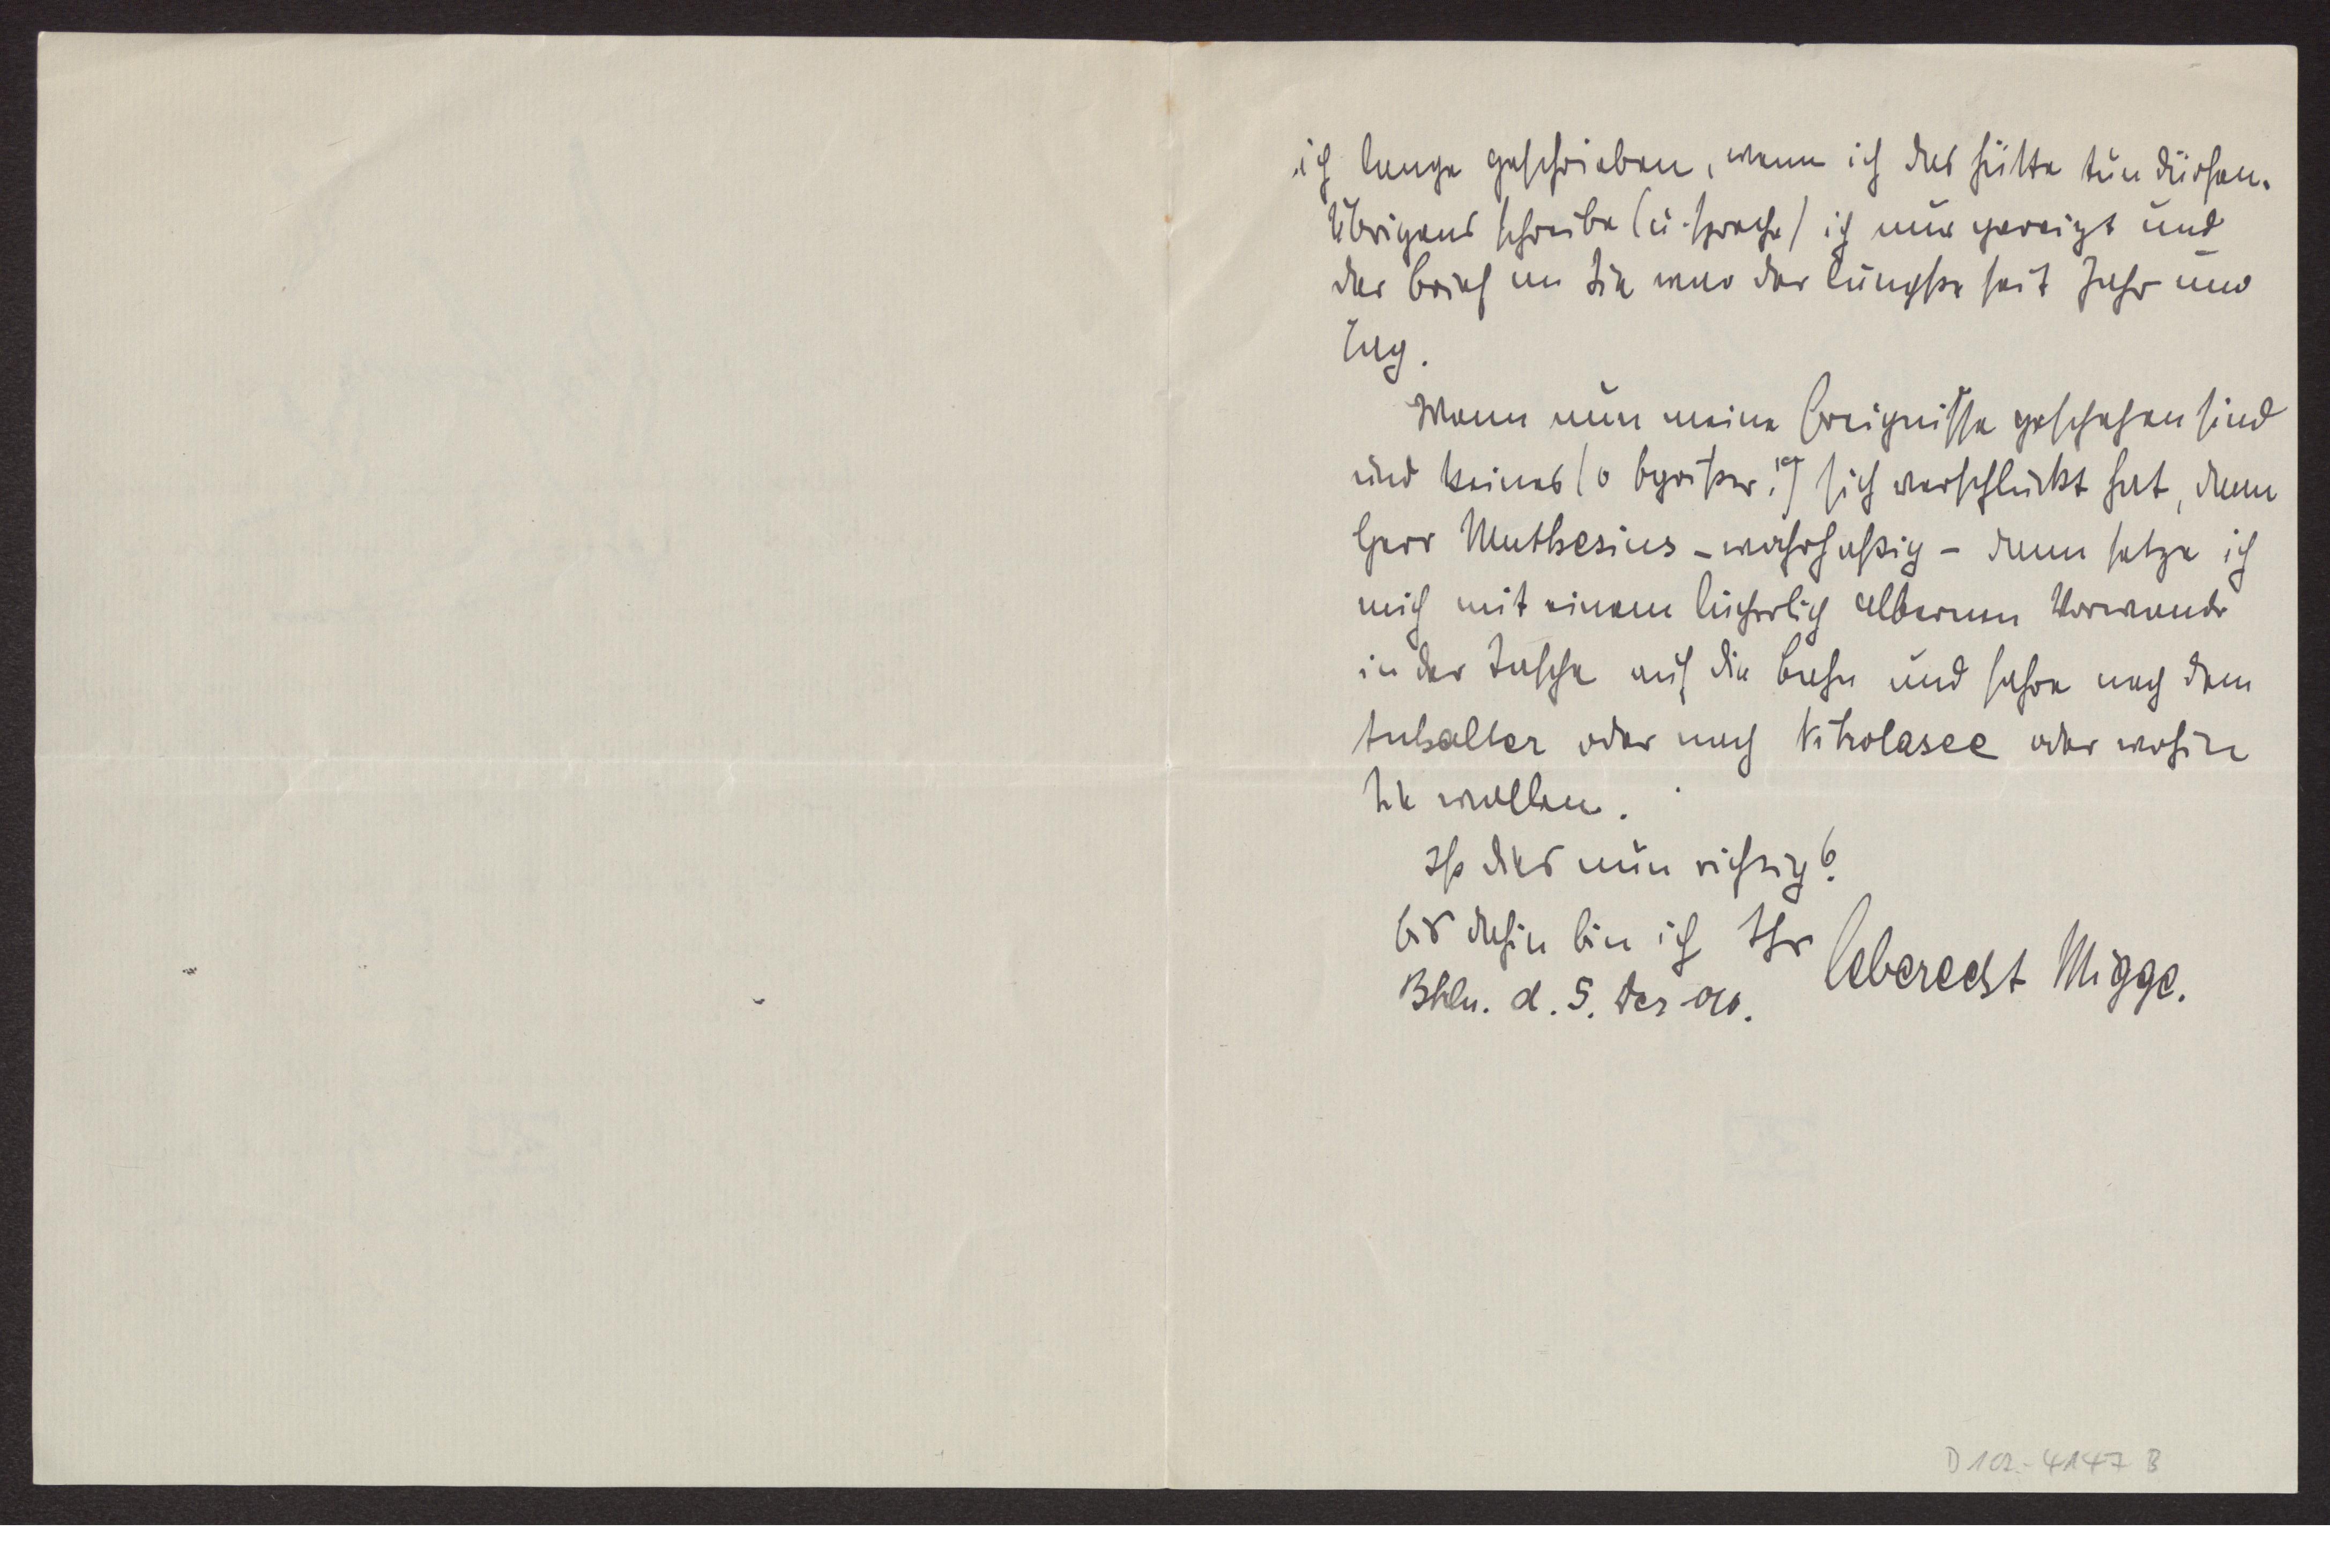 ich lange geschrieben, wenn ich das hätte tun dürfen.
Übrigens schreibe (u. spreche) ich nur gereizt und
der Brief an Sie war der längste seit Jahr und
Tag.
Wenn nun meine Ereignisse geschehen sind
und keines (o !) sich verschluckt hat, dann
Herr Muthesius – wahrhaftig – dann setze ich
mich mit einem lächerlich albernen Vorwande
in der Tasche auf die Bahn und fahre nach dem
Anhalter oder nach Nikolasee oder wohin
Sie wollen.
Ist dies nun richtig?
bis dahin bin ich Ihr
Leberecht Migge.
d. 5. Dez.
D 102-4147 B